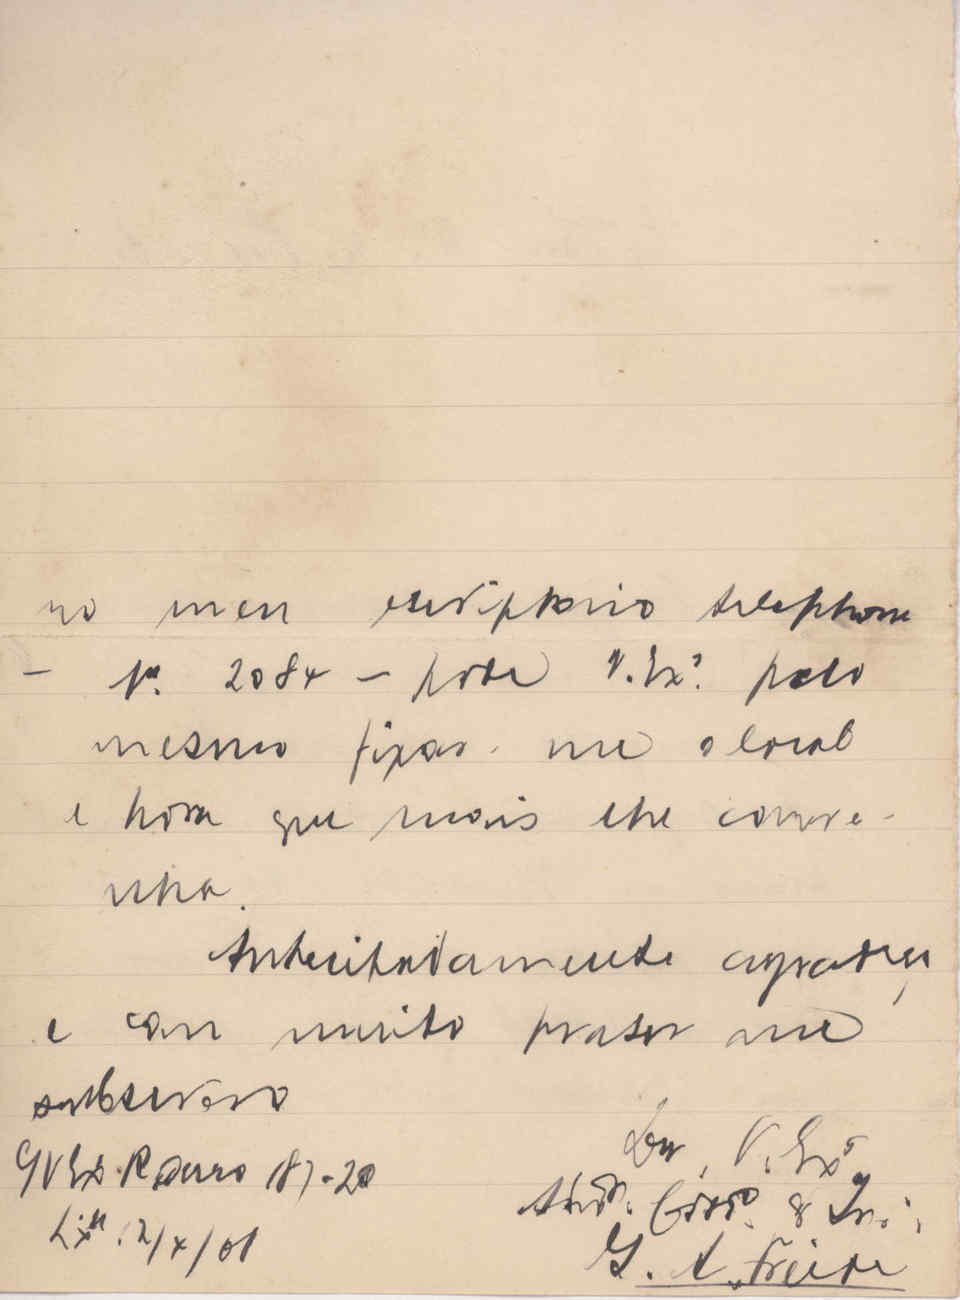 no meu escriptorio telephone
– Nº. 2084 – pode V. Exª. pelo
mesmo fixar-me o local
e hora que mais lhe conve-
nha.
Antecipadamente agradeço
e com muito prazer me
subscrevo
De V. Exª
S/C R Ouro 187-20
Attº. Cr.do &
Lxª. 2/X/01
G. A. Freire